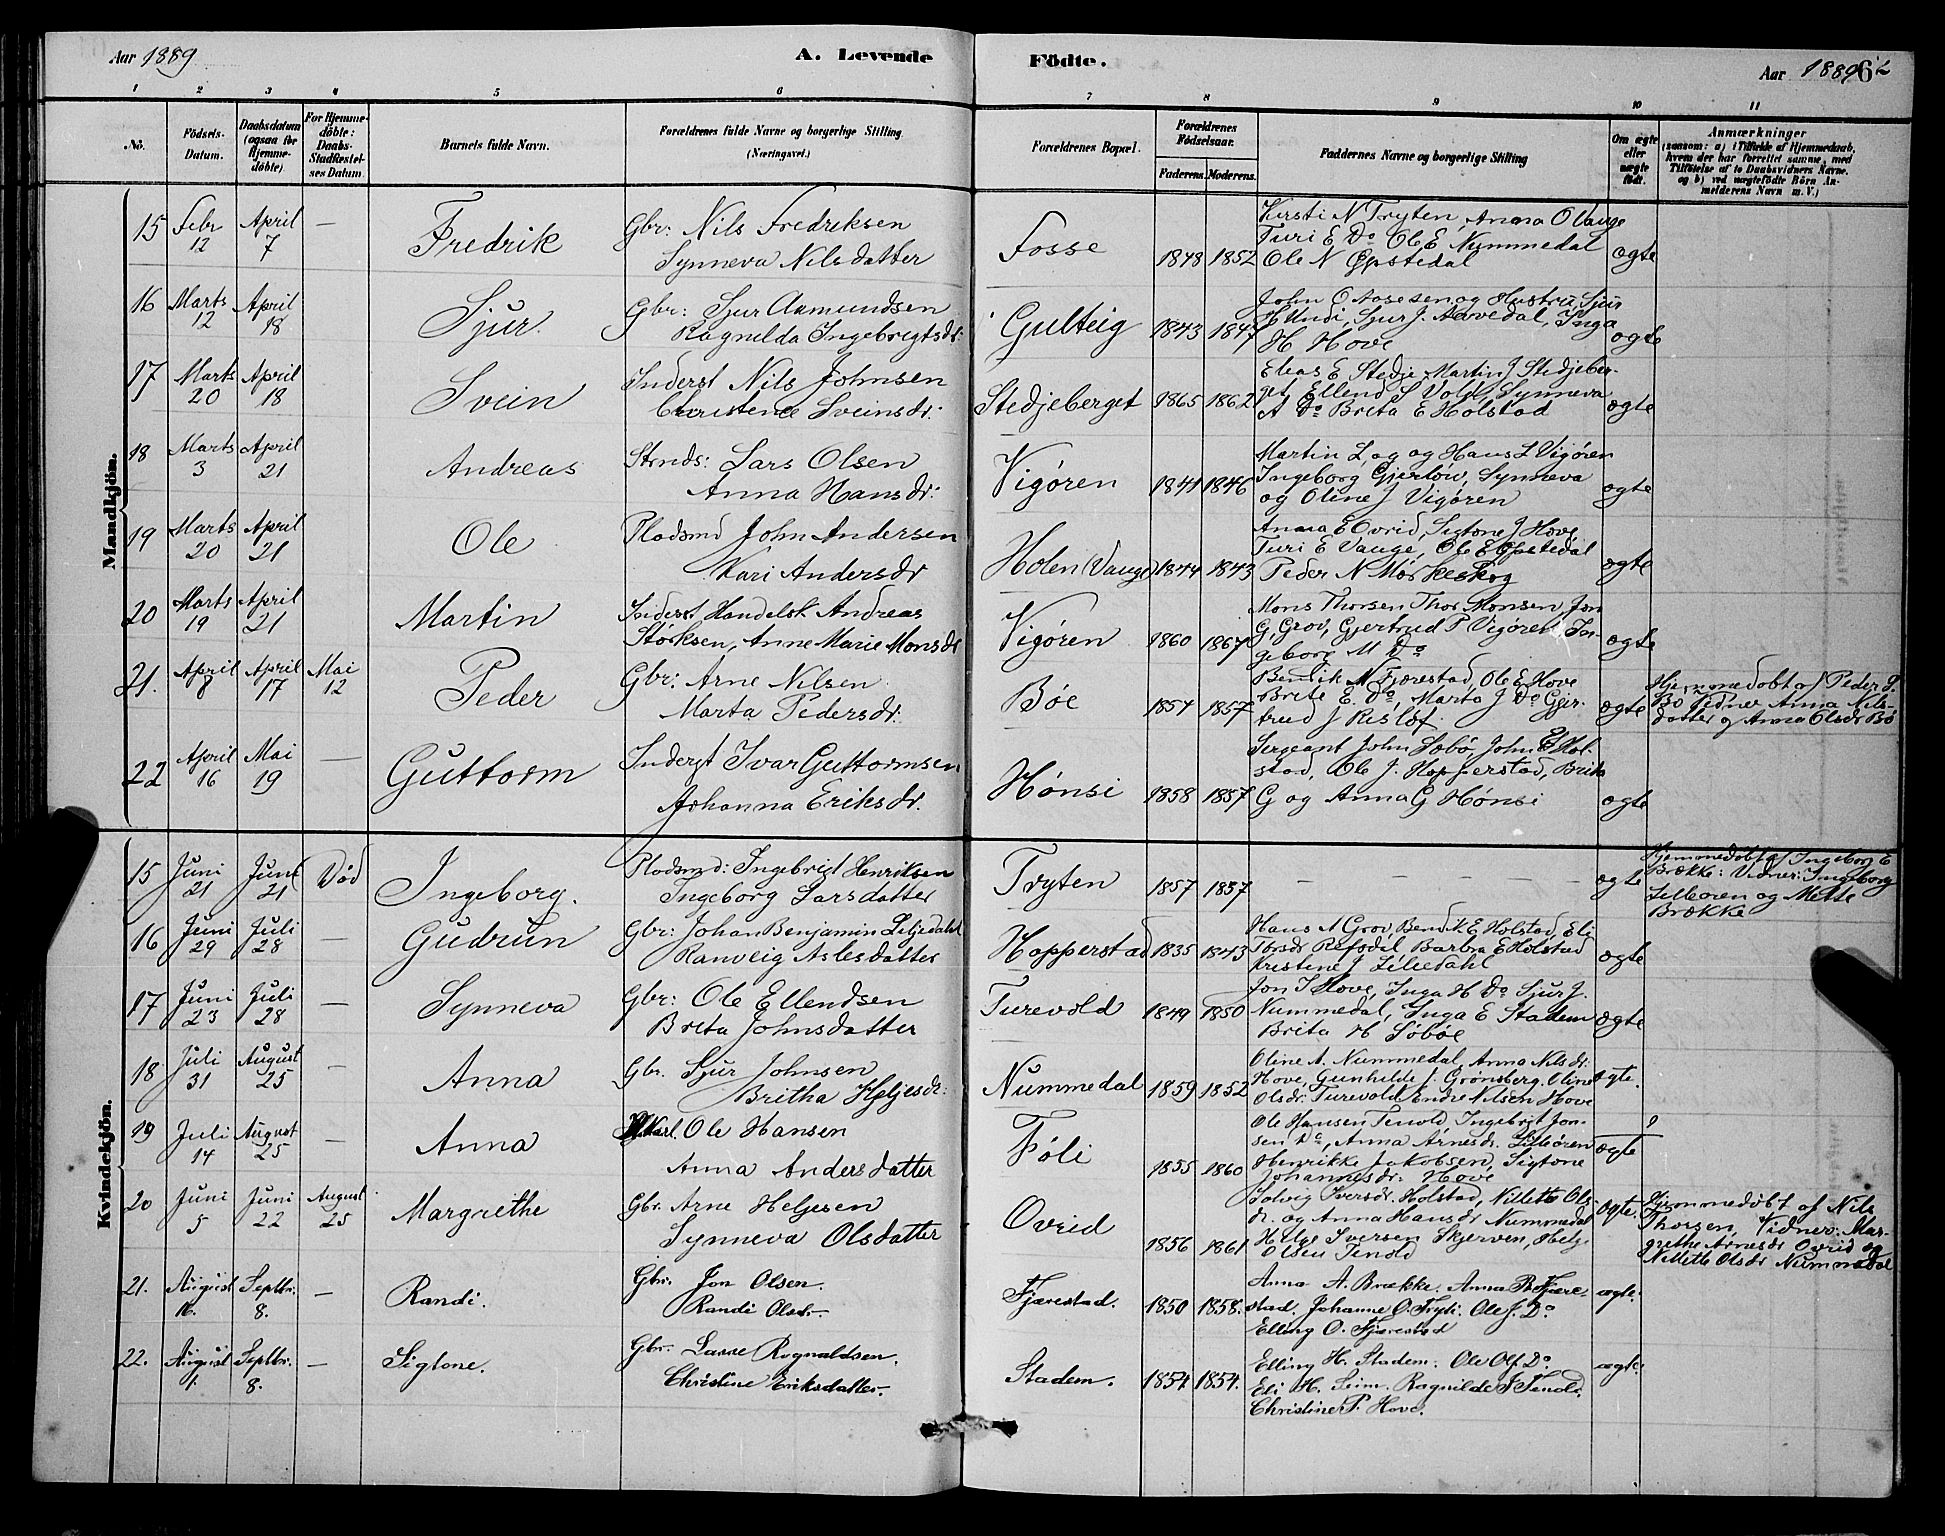 Aar 1889
A. Levende
Födte.
Aar 1889
62
1 2 3 4 5 6 7 8 9 10 11
No.
Födsels-Datum.
Daabsdatum (ogsaa for Hjemme-döbte)
For Hjemme-döbte: Daabs-Stadfæstel-ses Datum.
Barnets fulde Navn.
Forældrenes fulde Navne og borgerlige Stilling. (Næringsvei.)
Forældrenes Bopæl.
Forældrenes Födselsaar.
Faderens. Moderens.
Faddernes Navne og borgerlige Stilling
Om ægte eller uægte födt.
Anmærkninger
(saasom: a) i Tilfælde af Hjemmedaab,
hvem der har forrettet samme, med
Tilföielse af to Daabsvidners Navne.
og b) ved uægtefödte Börn An-
melderens Navn m. V.)
Mandkjön.
15 Febr 12 April 7 — Fredrik Gbr: Nils Fredriksen
Synneva Nilsdatter
Fosse 1848 1852
Kirsti N Tryten, Anna O Vange
Turi E Do Ole E Nummedal
Ole N Opstedal
ægte
16 Marts 12 April 18 Sjur. Gbr: Sjur Aamundsen
Ragnilda Ingebrigtsdr:
Gulteig 1843 1847
John O Aasesen og Hustru, Sjur
H Undi, Sjur J. Aavedal, Inga
H Hove
ægte
17 Marts 20 April 18 Svein Inderst Nils Johnsen
Christence Sveinsdr:
Stedjeberget 1865 1862
Eleas E Stedje Martin J Stedjeber-
get, Ellend S Vold, Synneva
A Do Brita E Holstad
ægte
18 Marts 3 April 21 Andreas Strnds: Lars Olsen
Anna Hansdr:
Vigøren 1841 1846
Martin L og og Hans L Vigøren
Ingeborg Gjerløw, Synneva
og Oline J Vigøren
ægte
19 Marts 20 April 21 Ole Pladsmd John Andersen
Kari Andersdr
Holen (Vange) 1844 1843
Anna E Ovrid, Sigtone J Hove,
Turi E Vange, Ole E Opstedal
Peder N Mørkeskog
ægte
20 Marts 19 April 21 Martin Inderst, Handelsk Andreas
Størksen, Anne Marie Monsdr
Vigøren 1860 1867
Mons Thorsen Thor Monsen, Jon
G. Grov, Gjertrud P Vigøren, In-
geborg M Do
ægte
21. April 8 April 17 Mai 12 Peder Gbr: Arne Nilsen
Marta Pedersdr:
Bøe 1854 1857
Bendik N Fjærestad, Ole E Hove
Brite E. Do, Marta J Do Gjer-
trud J Risløf.
ægte
Hjemmedøbt af Peder L.
Bø Vidner Anna Nils-
datter og Anna Olsdr Bø
22 April 16 Mai 19 — Guttorm Inderst Ivar Guttormsen
Johanna Eriksdr.
Hønsi 1858 1857
Sergeant John Søbø, John E Hol-
stad, Ole J. Hopperstad, Brita
G og Anna G Hønsi
ægte
Kvindekjön.
15 Juni 21 Juni 21 Död Ingeborg. Pladsmd: Ingebrigt Henriksen
Ingeborg Larsdatter
Tryten 1857 1857 — — — — — —
ægte
Hjemmedøbt af Ingeborg E
Brække: Vidner: Ingeborg
Lilleøren og Mette
Brække
16 Juni 29 Juli 28 — Gudrun Gbr: Johan Benjamin Liljedahl
Ranveig Aslesdatter
Hopperstad 1835 1843
Hans A Grov, Bendik E Holstad, Eli
Torsdr Refsdal Barbra E Holstad
Kristene J Liliedahl
ægte
17 Juni 23 Juli 28 — Synneva Gbr: Ole Ellendsen
Brita Johnsdatter
Turevold 1849 1850
Jon I Hove, Inga H Do Sjur J.
Nummedal, Inga E Stadem
Brita H Søbøe
ægte
18 Juli 31 August 25 — Anna Gbr. Sjur Johnsen
Britha Heljesdr:
Nummedal 1859 1852
Oline A. Nummedal, Anna Nilsdr.
Hove, Gunhilde J. Grønsberg. Oline
Olsdr. Turevold Endre Nilsen Hove
ægte.
19 Juli 14 August 25 — Anna Ole Hansen
Anna Andersdatter
Føli 1855 1860
Ole Hansen Tenold, Ingebrigt Jon-
sen Do, Anna Arnesdr. Lilleøren
Henrikke Jakobsen, Sigtone
Johannesdr. Hove
ægte
20 Juni 5 Juni 22 August 25 Margrethe Gbr. Arne Heljesen
Synneva Olsdatter
Ovrid 1856 1861
Solvig Iversdr. Holstad, Nillette Ols-
dr. og Anna Hansdr Nummedal
Helge Iversen Skjerven, Helge
Olsen Tenold
ægte.
Hjemmedøbt af Nils
Thorsen, Vidner: Mar-
grethe Arnesdr Ovrid og
Nillette Olsdr Nummedal
21. August 16. Septbr. 8. — Randi. Gbr. Jon Olsen.
Randi Olsdr.
Fjærestad. 1850 1858.
Anna A. Brække. Anna B. Fjære-
stad. Johanne O. Tryti. Ole J. Do
Elling O. Fjærestad
ægte.
22. August 1. Septbr. 8. — Sigtone. Gbr. Lasse Rognaldsen.
Christine Eriksdatter.
Stadem. 1854 1854.
Elling H. Stadem. Ole Ols. Do
Eli H. Seim. Ragnilde J Tenold
Christine P. Hove.
ægte.